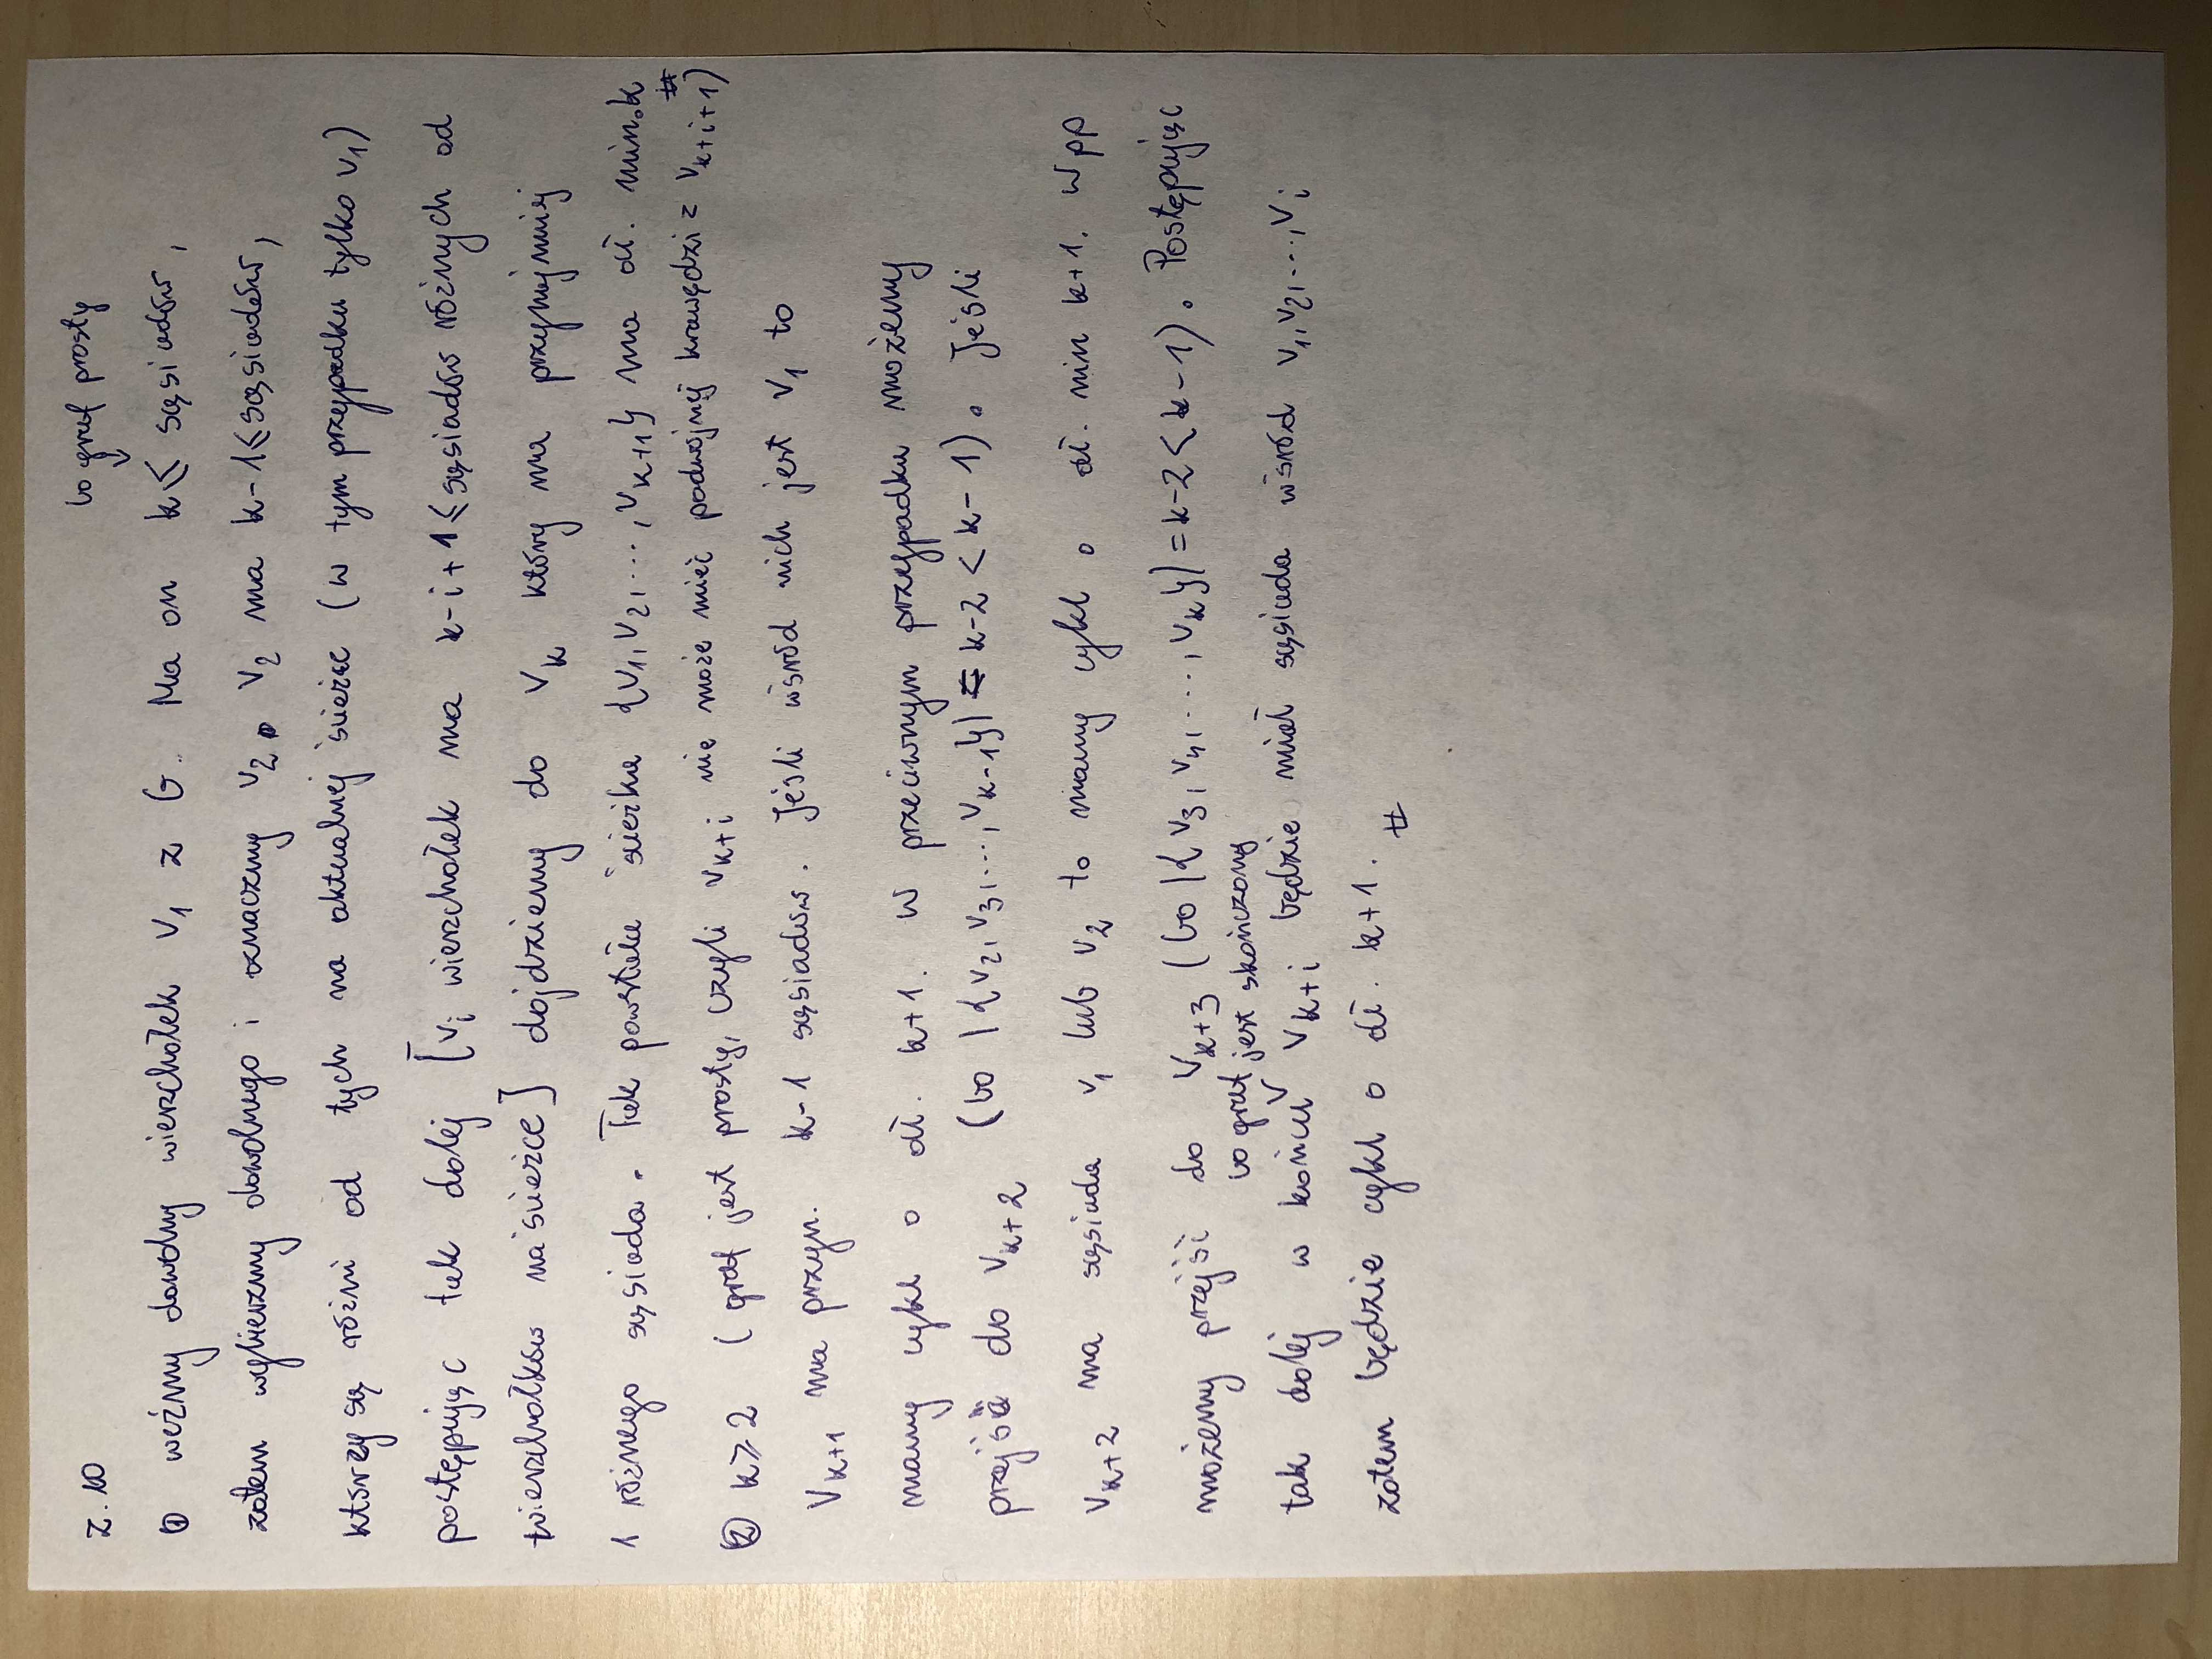 z. 10
bo graf prosty
① weźmy dowolny wierzchołek v₁ z G. Ma on k ≤ sąsiadów,
zatem wybierzmy dowolnego i oznaczmy v₂. v₂ ma k-1 ≤ sąsiadów,
którzy są różni od tych na aktualnej ścieżce (w tym przypadku tylko v₁)
postępując tak dalej [vᵢ wierzchołek ma k-i+1 ≤ sąsiadów różnych od
wierzchołków na ścieżce] dojdziemy do vₖ który ma przynajmniej
1 różnego sąsiada. Tak powstała ścieżka {v₁, v₂, ..., vₖ₊₁} ma dł. min. k #
② k ≥ 2 (graf jest prosty, czyli vₖ₊ᵢ nie może mieć podwójnej krawędzi z vₖ₊ᵢ₊₁)
vₖ₊₁ ma przyn. k-1 sąsiadów. Jeśli wśród nich jest v₁ to
mamy cykl o dł. k+1. W przeciwnym przypadku możemy
przejść do vₖ₊₂ (bo |{v₂, v₃, ..., vₖ₋₁}| = k-2 < k-1). Jeśli
vₖ₊₂ ma sąsiada v₁ lub v₂ to mamy cykl o dł. min k+1. W pp
możemy przejść do vₖ₊₃ (bo |{v₃, v₄, ..., vₖ}| = k-2 < k-1). Postępując
bo graf jest skończony
tak dalej w końcu vₖ₊ᵢ będzie miał sąsiada wśród v₁, v₂, ..., vᵢ
zatem będzie cykl o dł. k+1. #